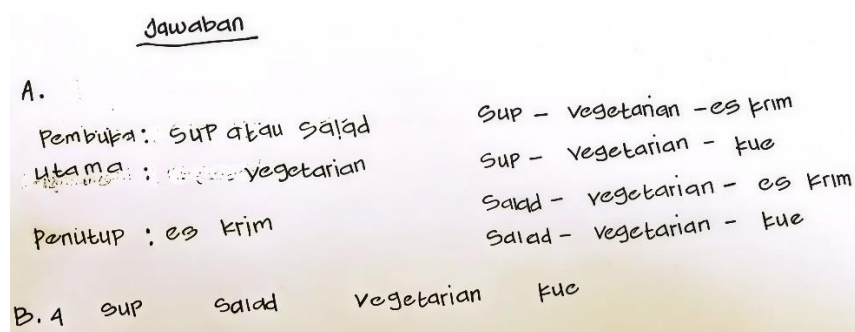 Jawaban
A.
Pembuka: sup atau salad
Utama : vegetarian
Penutup : es krim
Sup - vegetarian - es krim
Sup - vegetarian - kue
Salad - vegetarian - es krim
Salad - vegetarian - kue
B. 4 sup salad vegetarian kue